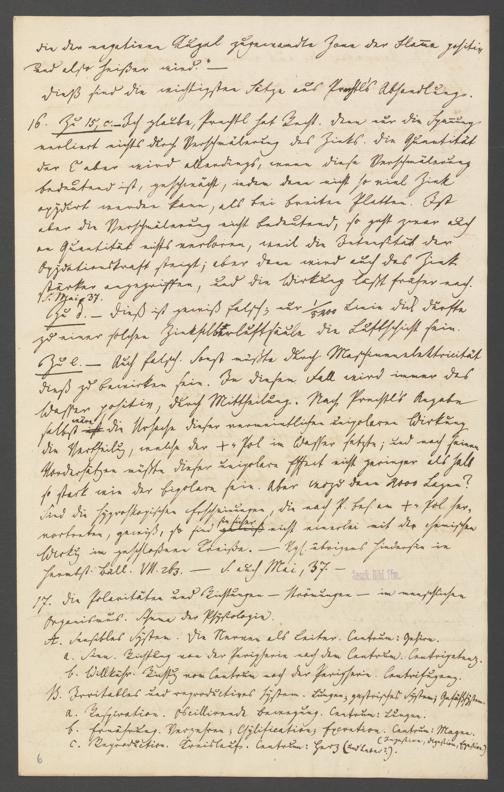 die der negativen Kugel zugewandte Zone der Flamme positiv
und also heißer wird." —
Dieß sind die wichtigsten Sätze aus Prechtl's Abhandlung.
16. Zu 15, c. — Ich glaube, Prechtl hat Recht. Denn nur die Spannung
verliert nichts durch Verschmälerung des Zinks. Die Quantität
der E aber wird allerdings, wenn diese Verschmälerung
bedeutend ist, geschwächt, indem dann nicht so viel Zink
oxydirt werden kann, als bei breiten Platten. Ist
aber die Verschmälerung nicht bedeutend, so geht zwar auch
an Quantität nichts verloren, weil die Intensität der
Oxydationskraft steigt; aber dann wird auch das Zink
stärker angegriffen, und die Wirkung läßt früher nach.
S. Mai, 37.
Zu d. — Dieß ist gewiß falsch; nur 1/5000 Linie dick dürfte
zu einer solchen Zinksilberluftsäule die Luftschicht sein.
Zu e. — Auch falsch. Sonst müßte durch Maschinenelektricität
dieß zu bewirken sein. In diesem Fall wird immer das
Wasser positiv, durch Mittheilung. Nach Prechtl's Angabe
selbst wäre die Ursache dieser vermeintlichen unipolaren Wirkung
die Vertheilung, welche der + Pol im Wasser setzte; und nach seinen
Vordersätzen müßte dieser unipolare Effect nicht geringer als halb
so stark wie der bipolare sein. Aber wozu dann 2000 Lagen?
Sind die hygroskopischen Erscheinungen, die nach P. bes. am + Pol her-
vortreten, gewiß, so sind sie sicher nicht einerlei mit der chemischen
Wirkung im geschloßenen Kreise. — Vgl. übrigens hinderhin in
VII. 263. — S. auch Mai, 37. —
17. Die Polaritäten und Richtungen — Strömungen — im menschlichen
Organismus. Schema der Physiologie.
A. Sensibles System. Die Nerven als Leiter. Centrum: Gehirn.
a. Sinn. Richtung von der Peripherie nach dem Centrum. Centripetenz.
b. Willkühr. Richtung vom Centrum nach der Peripherie. Centrifugenz.
B. Irritables und reproductives System. Lungen, gastrisches System, Gefäßsystem.
a. Respiration. Oscillirende Bewegung. Centrum: Lungen.
b. Ernährung. Verzehren; Chylification; Excretion. Centrum: Magen.
(Ingestion, Digestion, Egestion)
c. Reproduction. Kreislauf. Centrum: Herz (und Leber?).
6